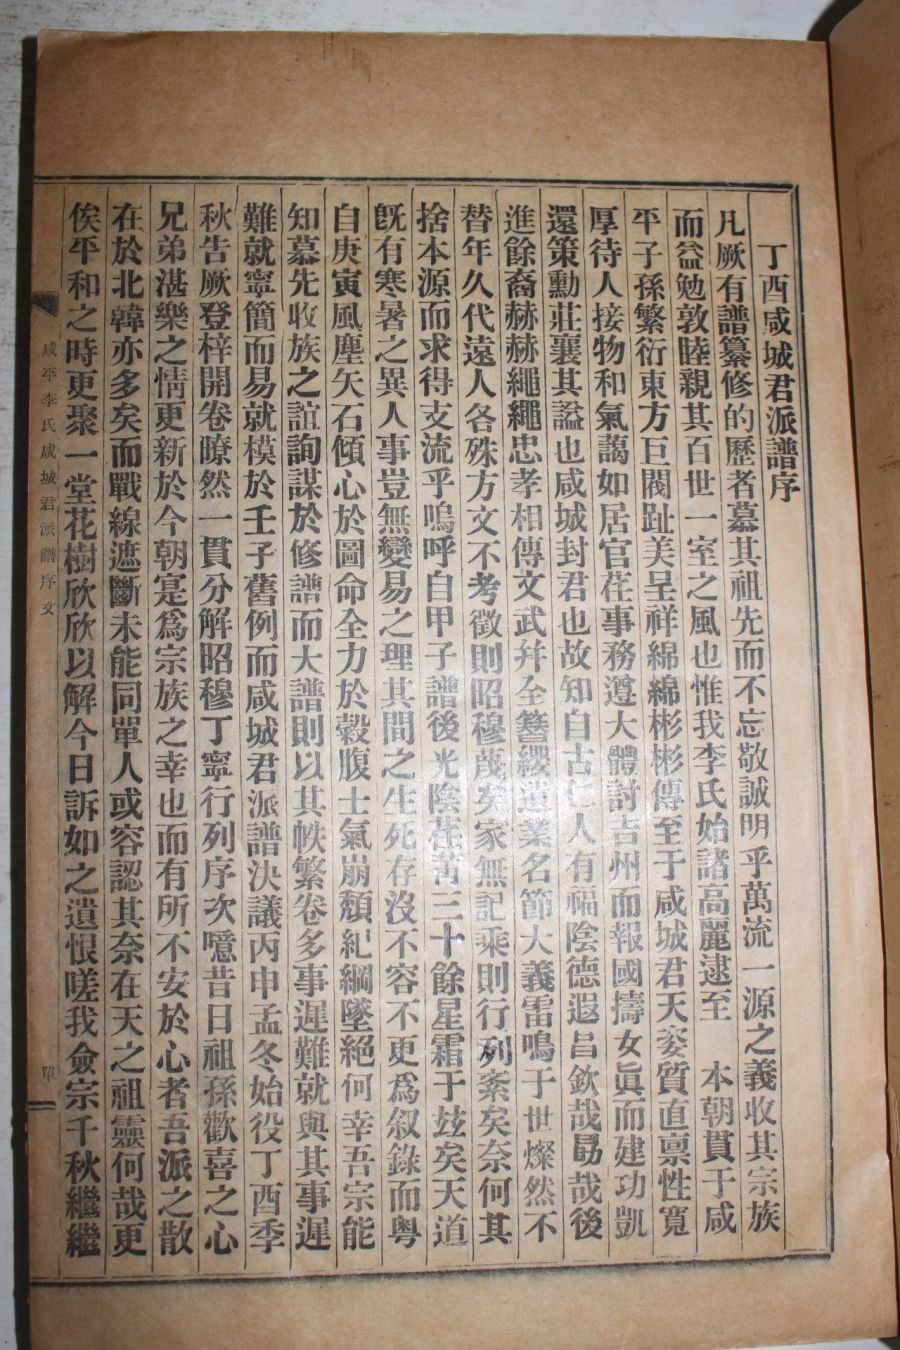 丁酉咸城君派譜序
凡厥有譜纂修的歷者慕其祖先而不忘敬誠明乎萬流一源之義收其宗族
而益勉敦睦親其百世一室之風也惟我李氏始諸高麗逮至　本朝貫于咸
平子孫繁衍東方巨閥趾美呈祥綿綿彬彬傳至于咸城君天姿質直稟性寬
厚待人接物和氣藹如居官莅事務遵大體討吉州而報國擣女眞而建功凱
還策勳莊襄其謚也咸城封君也故知自古仁人有福陰德遐昌欽哉勗哉後
進餘裔赫赫繩繩忠孝相傳文武幷全簪纓遺業名節大義雷鳴于世燦然不
替年久代遠人各殊方文不考徵則昭穆蔑矣家無記乘則行列紊矣奈何其
捨本源而求得支流乎嗚呼自甲子譜後光陰荏苒三十餘星霜于玆矣天道
旣有寒暑之異人事豈無變易之理其間之生死存沒不容不更爲叙錄而粤
自庚寅風塵矢石傾心於圖命全力於穀腹士氣崩頹紀綱墜絕何幸吾宗能
知慕先收族之誼詢謀於修譜而大譜則以其帙繁卷多事遲難就與其事遲
難就寧簡而易就模於壬子舊例而咸城君派譜決議丙申孟冬始役丁酉季
秋告厥登梓開卷暸然一貫分解昭穆丁寧行列序次噫昔日祖孫歡喜之心
兄弟湛樂之情更新於今朝寔爲宗族之幸也而有所不安於心者吾派之散
在於北韓亦多矣而戰線遮斷未能同單人或容認其奈在天之祖靈何哉更
俟平和之時更聚一堂花樹欣欣以解今日訴如之遺恨嗟我僉宗千秋繼繼
咸平李氏咸城君派譜序文
單